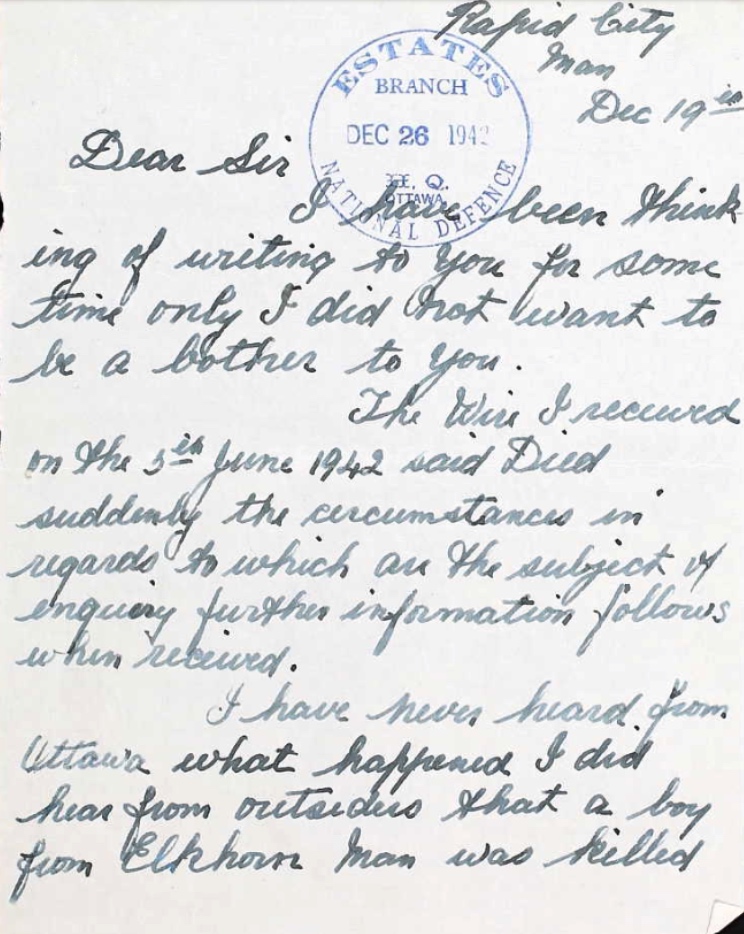 Rapid City
Man
Dec 19th
ESTATES
BRANCH
DEC 26 1942
H. Q.
OTTAWA
NATIONAL DEFENCE
Dear Sir
I have been think
ing of writing to you for some
time only I did not want to
be a bother to you.
The Wire I received
on the 5th June 1942 said Died
suddenly the circumstances in
regards to which are the subject of
enquiry further information follows
when received.
I have never heard from
Ottawa what happened I did
hear from outsiders that a boy
from Elkhorn Man was killed